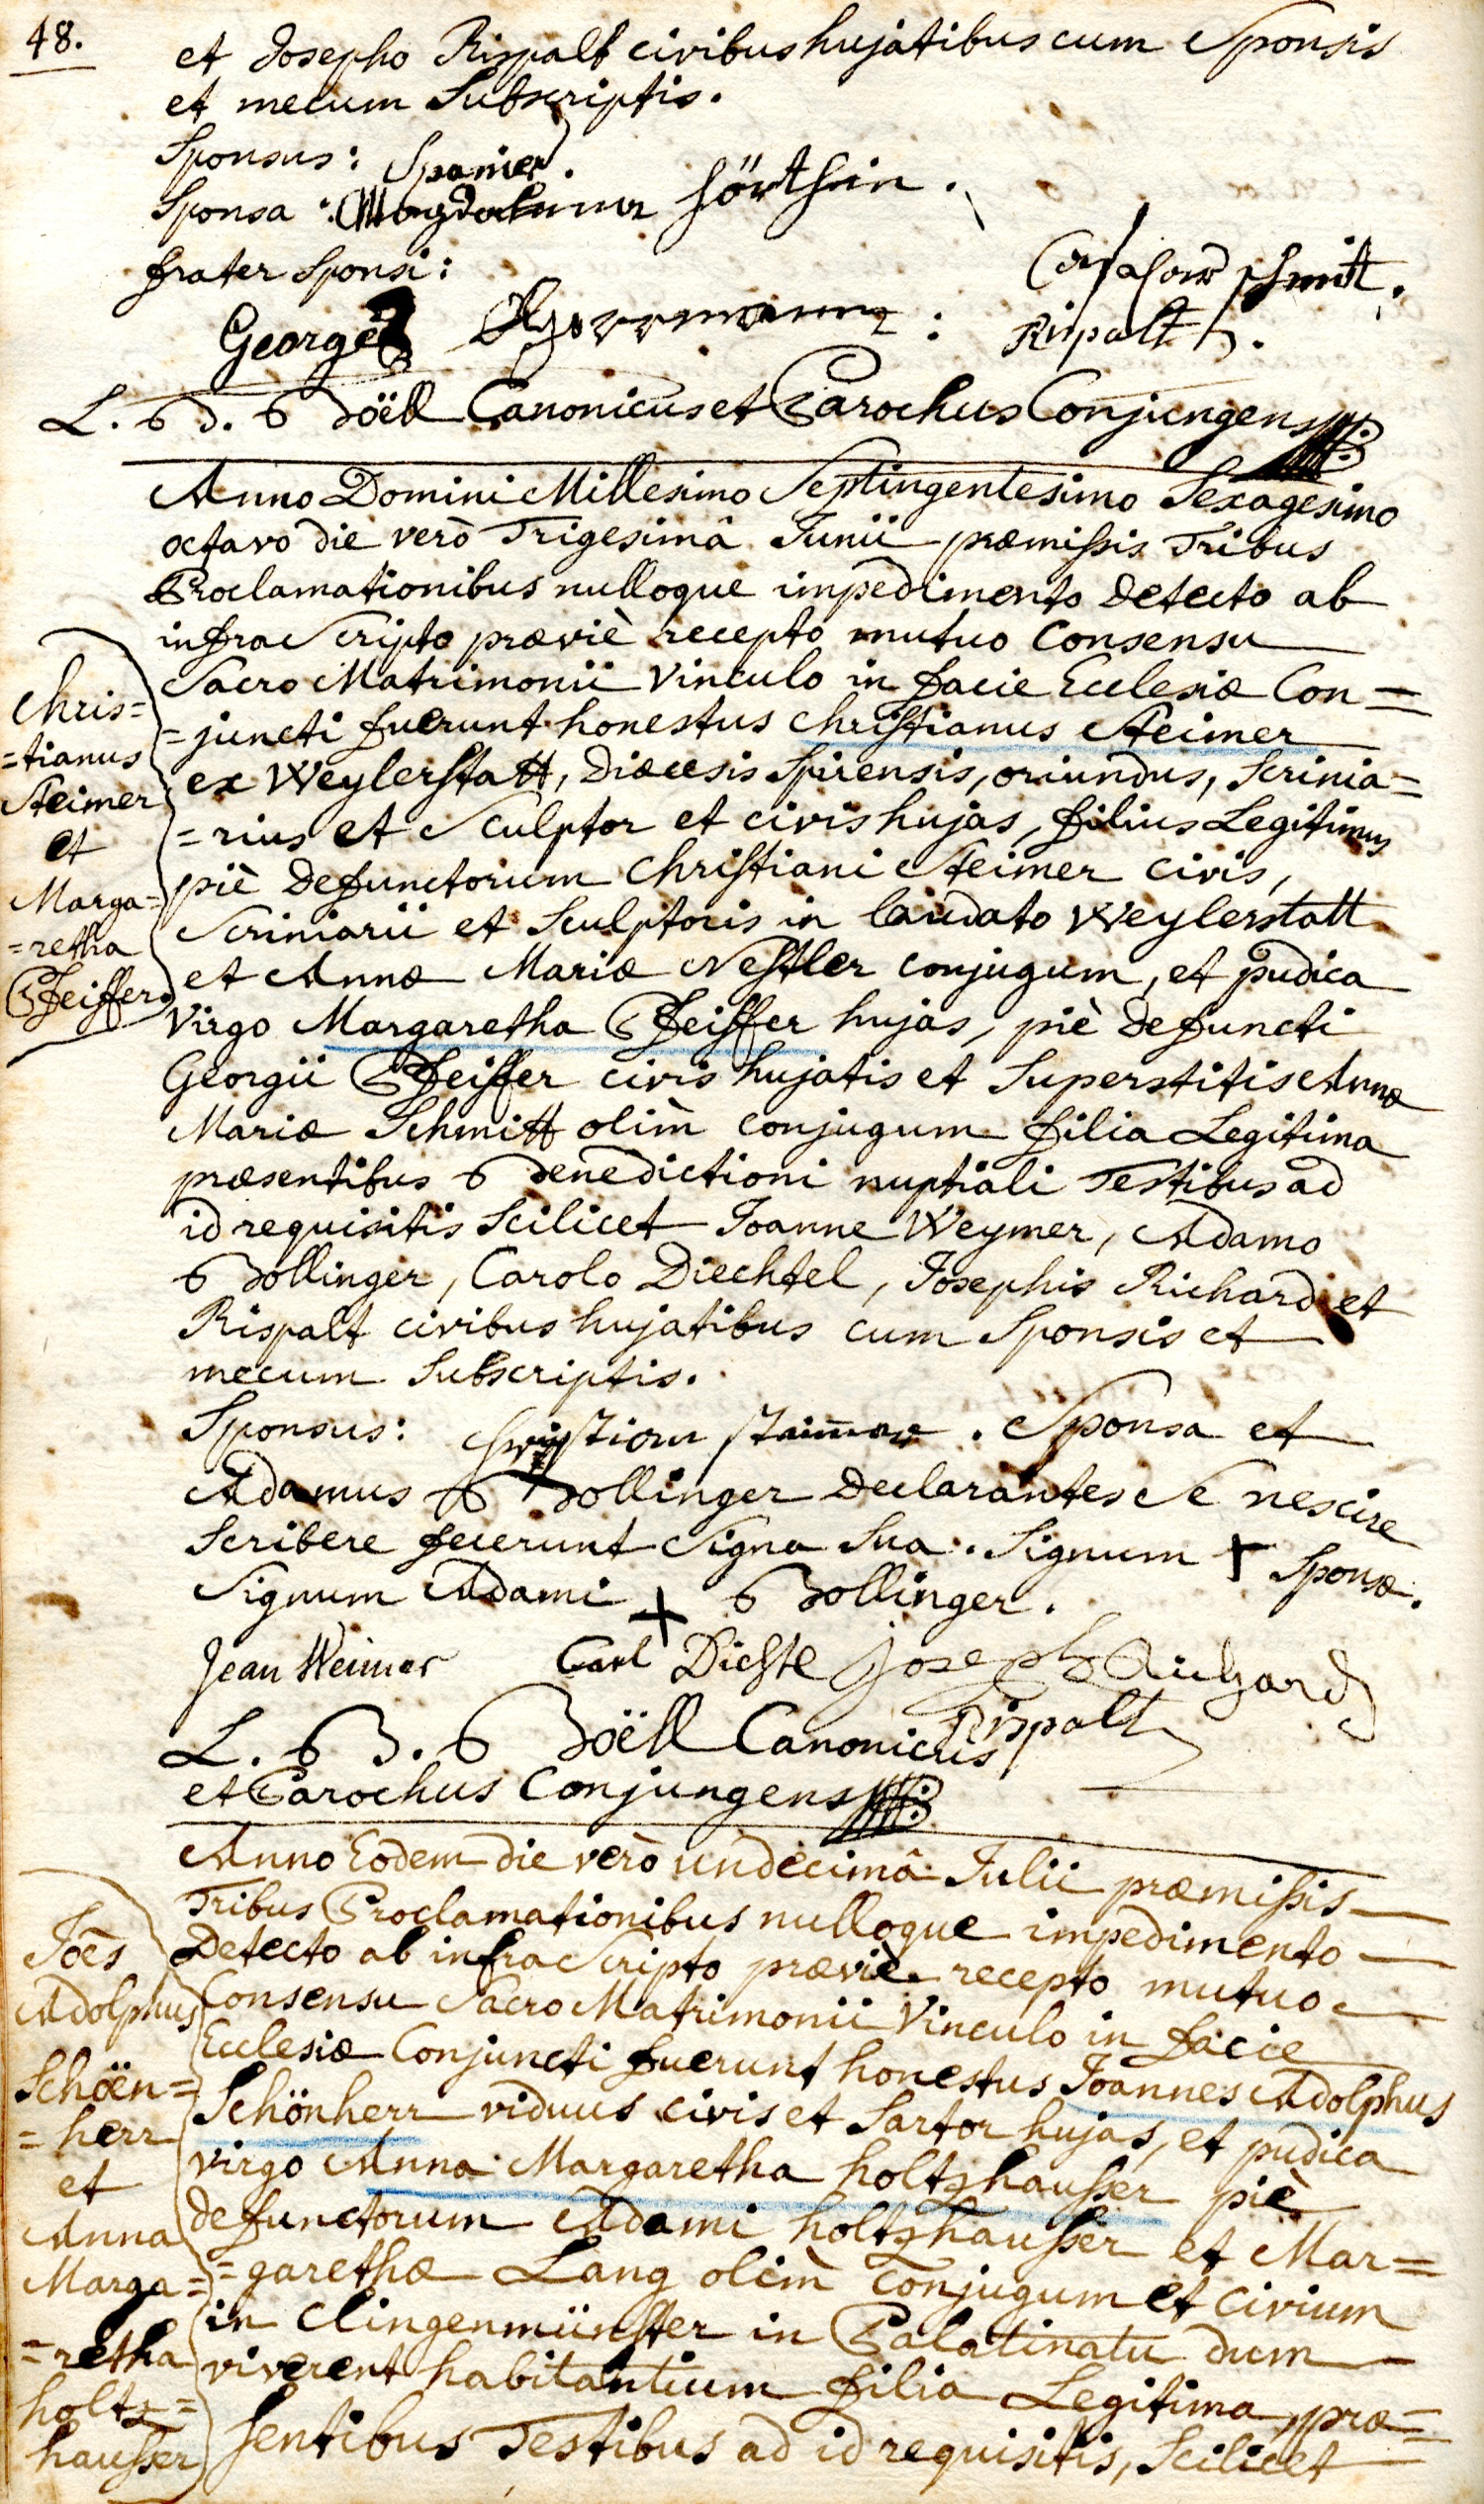 48.
et Josepho Rispalt civibus hujatibus cum Sponsis
et mecum Subscriptis.
Sponsus: Spanier.
Sponsa: Magdalena
frater Sponsi:
schmitt.
George
Rispalt.
L. B. Böell Canonicus et Parochus Conjungens
Anno Domini Millesimo Septingentesimo Sexagesimo
octavo die verò Trigesimâ Junii præmissis Tribus
Proclamationibus nulloque impedimento Detecto ab
infra Scripto præviè recepto mutuo Consensu
Sacro Matrimonii Vinculo in facie Ecclesiæ Con=
=juncti fuerunt honestus christianus Steimer
ex Weylerstatt, Diœcesis Spirensis, oriundus, Scrinia=
=rius et Sculptor et civis hujas, filius Legitimus
piè Defunctorum Christiani Steimer civis,
Scriniarii et Sculptoris in laudato Weylerstatt
et Annæ Mariæ Nestler conjugum, et pudica
Virgo Margaretha Pfeiffer hujas, piè Defuncti
Georgii Pfeiffer civis hujatis et Superstitis Annæ
Mariæ Schmitt olim̀ conjugum filia Legitima
præsentibus Benedictioni nuptiali Testibus ad
id requisitis Scilicet Joanne Weymer, Adamo
Bollinger, Carolo Diechtel, Josephis Richard et
Rispalt civibus hujatibus cum Sponsis et
mecum Subscriptis.
Chris=
=tianus
Steimer
et
Marga=
=retha
Pfeiffer
Sponsus: Christian Staimer. Sponsa et
Adamus Bollinger Declarantes Se nescire
Scribere fecerunt Signa Sua. Signum + Sponsæ.
Signum Adami + Bollinger.
Jean Weimer Carl Dichte Joseph Richard
Rispalt
L. B. Böell Canonicus
et Parochus Conjungens
Anno Eodem die verò undecimâ Julii præmissis
Tribus Proclamationibus nulloque impedimento
Detecto ab infra Scripto præviè recepto mutuo
Consensu Sacro Matrimonii Vinculo in facie
Ecclesiæ Conjuncti fuerunt honestus Joannes Adolphus
Schönherr viduus civis et Sartor hujas, et pudica
virgo Anna Margaretha holtzhausser piè
defunctorum Adami holtzhausser et Mar=
=garethæ Lang olim̀ conjugum et civium
in Clingenmünster in Palatinatu dum
viverent habitantium filia Legitima, præ=
sentibus Testibus ad id requisitis, Scilicet
Joês
Adolphus
Schöen=
=herr
et
Anna
Marga=
=retha
holtz=
hausser